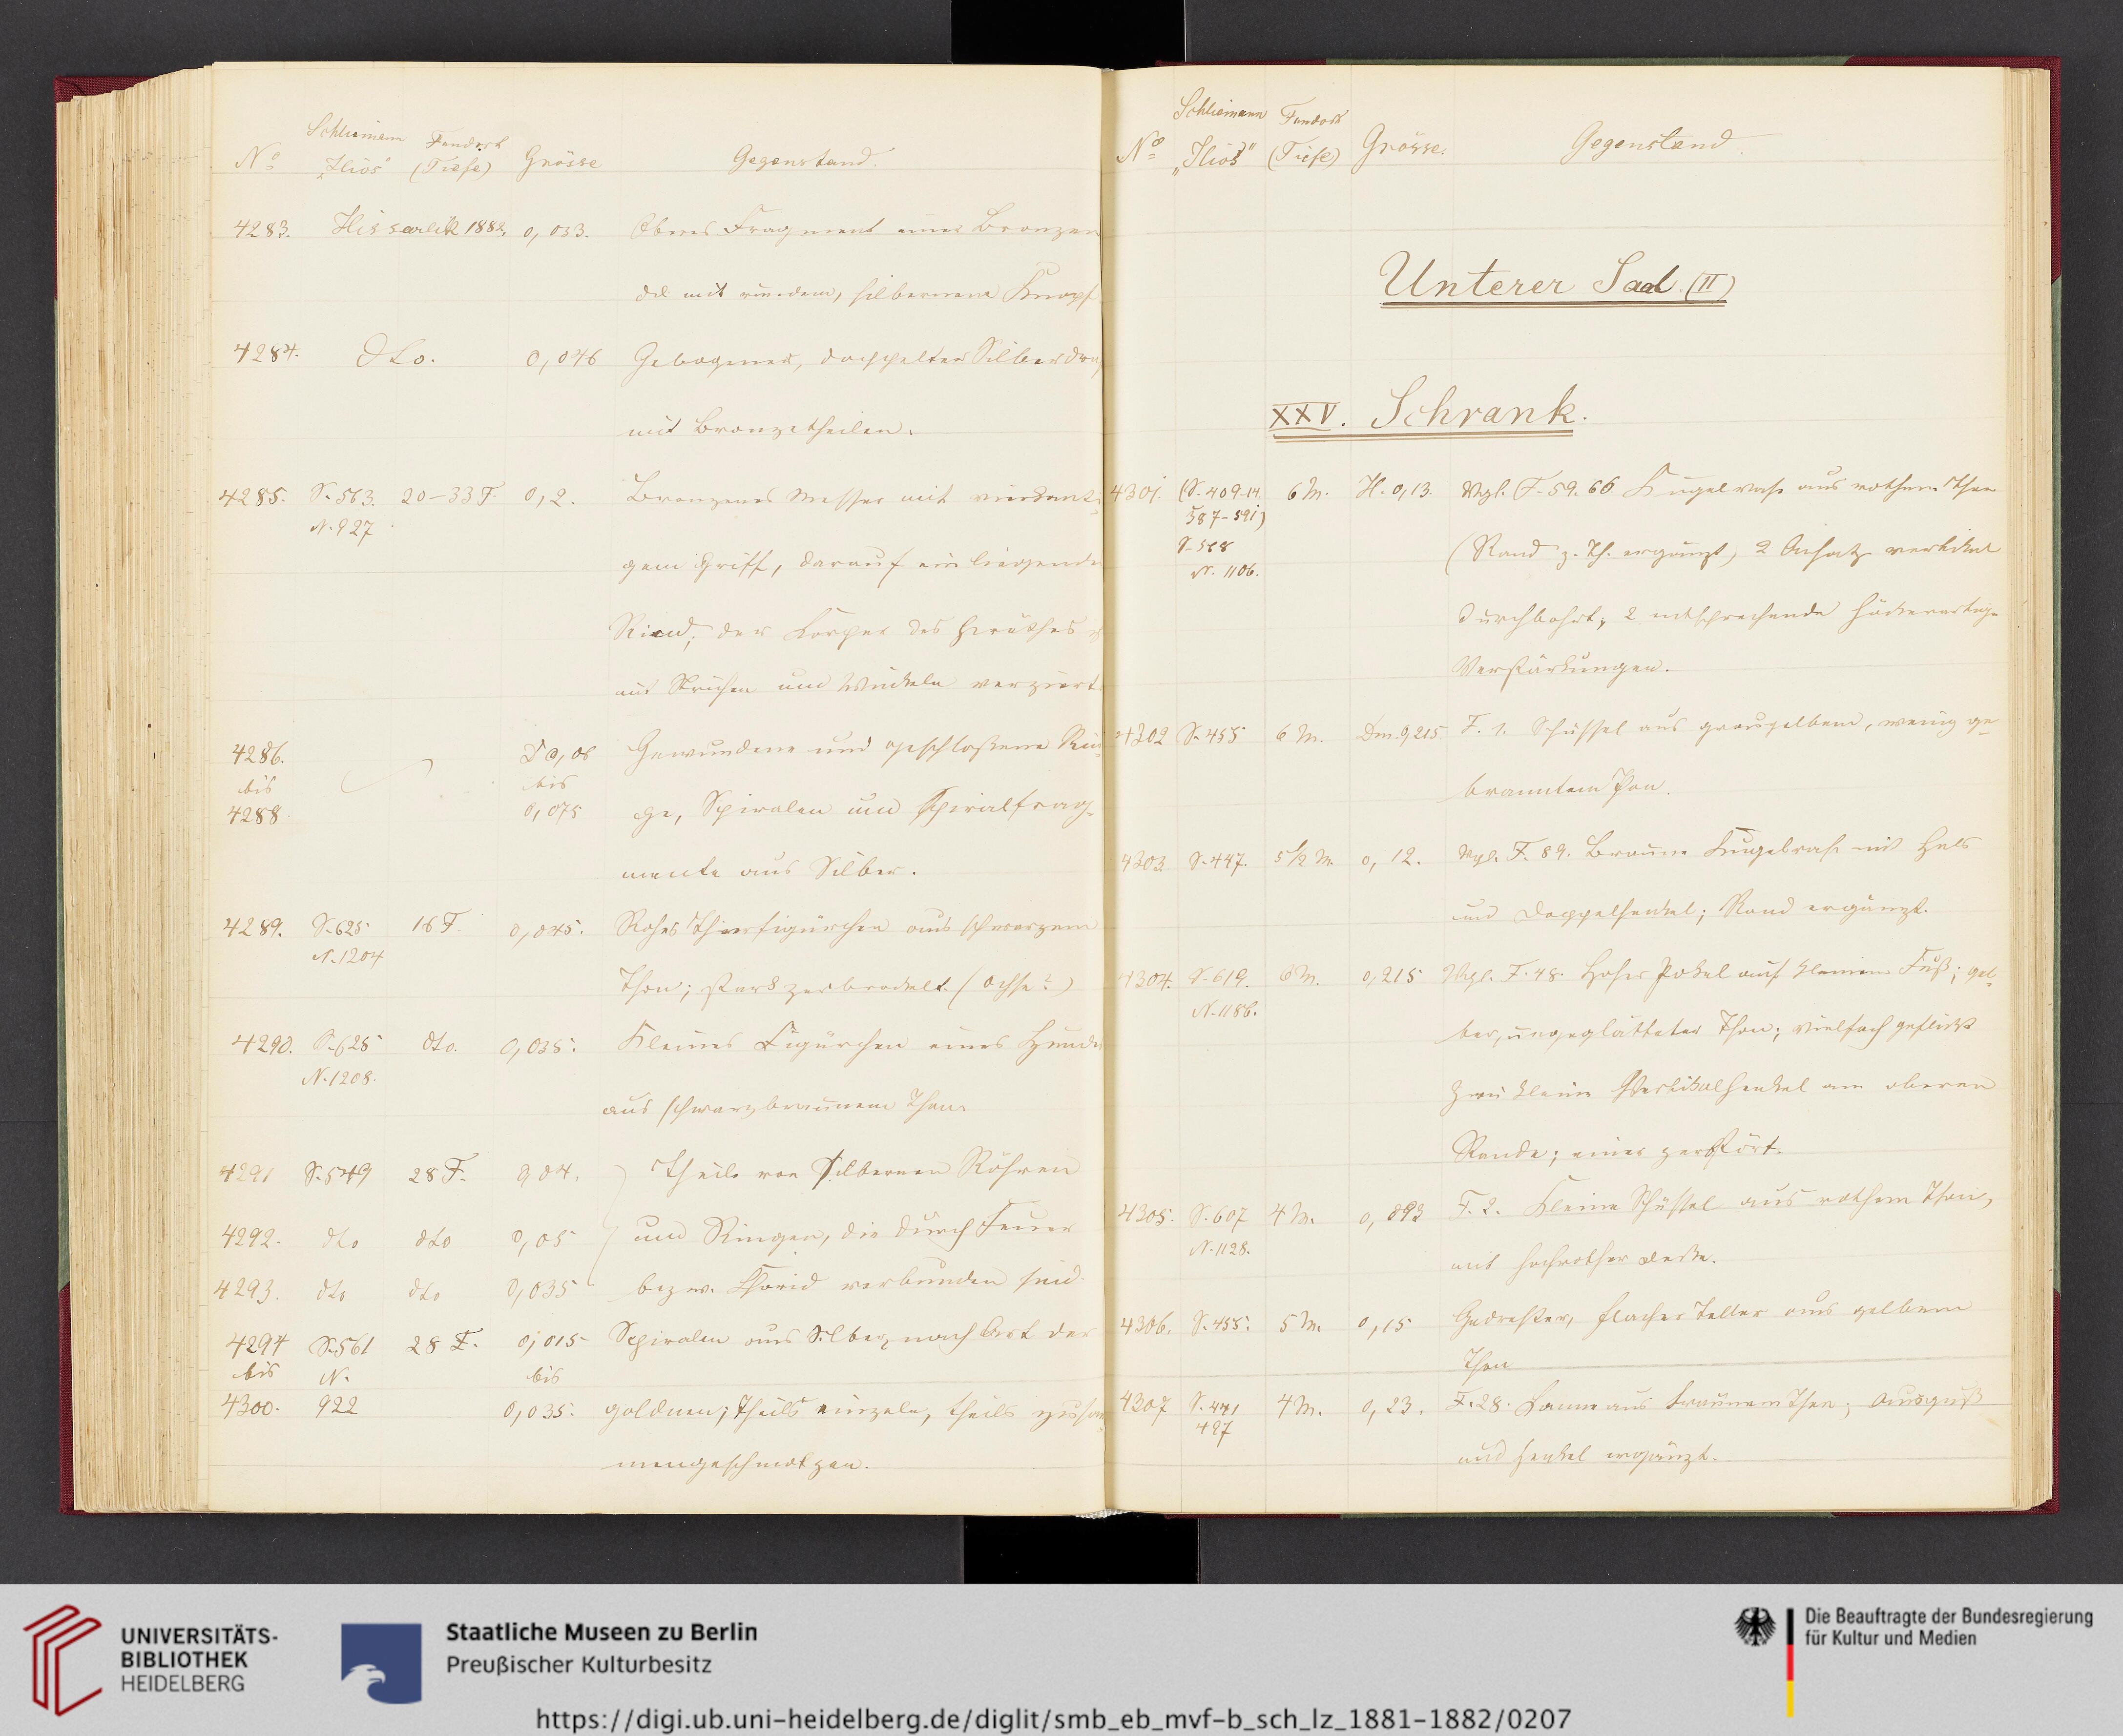 Schliemann Fundort
No „Ilios“ (Tiefe) Grösse Gegenstand.
4283. Hissarlik 1882. 0,033. Oberes Fragment einer Bronzena
del mit rundem, silbernem Knopf
4284. dto. 0,046 Gebogener, doppelter Silberdra
mit Bronzetheilen.
4285. S. 563. 20-33 F. 0,2. Bronzenes Messer mit vierkanti-
N. 927
gem Griff, darauf ein liegendes
Rind; der Körper des Geräthes
mit Strichen und Winkeln verziert.
4286. D 0,06 Gewundene und geschloßene Rin-
bis bis
4288. 0,075 ge, Spiralen und Spiralfrag-
mente aus Silber.
4289. S. 625 16 F. 0,045. Rohes Thierfigürchen aus schwarzem
N. 1204
Thon; stark zerbrockelt. (Ochse?)
4290. S. 625 dto. 0,035. Kleines Figürchen eines Hundes
N. 1208.
aus schwarzbraunem Thon.
4291 S. 549 28 F. 0,04. Theile von silbernen Röhren
4292. dto dto 0,05 und Ringen, die durch Feuer
4293. dto dto 0,035 bezw. Chorid verbunden sind.
4294 S. 561 28 F. 0,015 Spiralen aus Silber, nach Art der
bis N. bis
4300. 922 0,035. goldnen; theils einzeln, theils zusam-
mengeschmolzen.
Schliemann Fundort
No „Ilios“ (Tiefe) Grösse. Gegenstand.
Unterer Saal (II)
XXV. Schrank.
4301. (S. 409-14. 6 M. H. 0,13. Vgl. F. 59. 66. Kugelvase aus rothem Thon
387-591)
S. 568
N. 1106.
(Rand z. Th. ergänzt, 2 Ansätze vertikal
durchbohrt; 2 entsprechende höckerartige
Verstärkungen.
4302 S. 455 6 M. Dm. 0,215. F. 1. Schüssel aus graugelbem, wenig ge-
branntem Thon.
4303 S. 447. 5½ M. 0,12. Vgl. F. 89. Braune Kugelvase mit Hals
und Doppelhenkel; Rand ergänzt.
4304. S. 619. 6 M. 0,215 Vgl. F. 48. Hoher Pokal auf kleinem Fuß; gel-
N. 1186.
ber, ungeglätteter Thon; vielfach geflickt
Zwei kleine Vertikalhenkel am oberen
Rande; einer zerstört.
4305. S. 607 4 M. 0,093 F. 2. Kleine Schüssel aus rothem Thon,
N. 1128.
mit hochrother Decke.
4306. S. 455. 5 M. 0,15 Gedrehter, flacher Teller aus gelbem
Thon
4307 S. 441 4 M. 0,23. F. 28. Kanne aus braunem Thon; Ausguß
497
und Henkel ergänzt.
UNIVERSITÄTS-
BIBLIOTHEK
HEIDELBERG
Staatliche Museen zu Berlin
Preußischer Kulturbesitz
Die Beauftragte der Bundesregierung
für Kultur und Medien
https://digi.ub.uni-heidelberg.de/diglit/smb_eb_mvf-b_sch_lz_1881-1882/0207